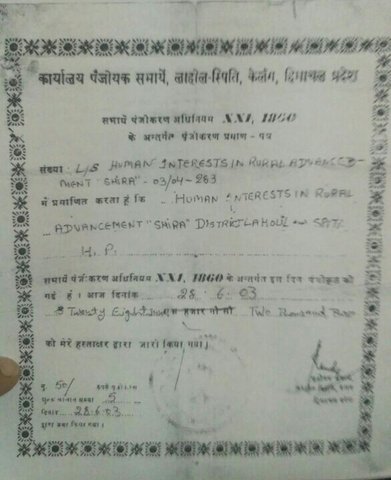 कार्यालय पंजीयक सभायें, लाहौल-स्पिति, केलांग, हिमाचल प्रदेश
सभायें पंजीकरण अधिनियम XXI, 1860
के अन्तर्गत पंजीकरण प्रमाण-पत्र
संख्या : L/S HUMAN INTERESTS IN RURAL ADVANCE-
MENT "SHIRA" - 03/04-283
मैं प्रमाणित करता हूं कि HUMAN INTERESTS IN RURAL
ADVANCEMENT "SHIRA" DISTRICT LAHOUL
H.P.
सभायें पंजीकरण अधिनियम XXI, 1860 के अन्तर्गत इस दिन पंजीकृत की
गई है । आज दिनांक 28.6.03
Twenty Eight एक हजार नौ सौ Two Thousand
को मेरे हस्ताक्षर द्वारा जारी किया गया।
रु. 50/-
5
दिनांक 28.6.03
द्वारा जमा किया गया।